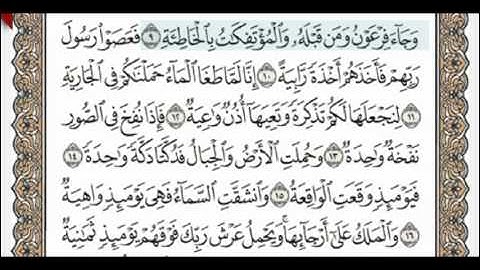 وَجَآءَ فِرْعَوْنُ وَمَن قَبْلَهُۥ وَٱلْمُؤْتَفِكَٰتُ بِٱلْخَاطِئَةِ ٩ فَعَصَوْا۟ رَسُولَ
رَبِّهِمْ فَأَخَذَهُمْ أَخْذَةً رَّابِيَةً ١٠ إِنَّا لَمَّا طَغَا ٱلْمَآءُ حَمَلْنَٰكُمْ فِى ٱلْجَارِيَةِ
١١ لِنَجْعَلَهَا لَكُمْ تَذْكِرَةً وَتَعِيَهَآ أُذُنٌ وَٰعِيَةٌ ١٢ فَإِذَا نُفِخَ فِى ٱلصُّورِ
نَفْخَةٌ وَٰحِدَةٌ ١٣ وَحُمِلَتِ ٱلْأَرْضُ وَٱلْجِبَالُ فَدُكَّتَا دَكَّةً وَٰحِدَةً ١٤
فَيَوْمَئِذٍ وَقَعَتِ ٱلْوَاقِعَةُ ١٥ وَٱنشَقَّتِ ٱلسَّمَآءُ فَهِىَ يَوْمَئِذٍ وَاهِيَةٌ
١٦ وَٱلْمَلَكُ عَلَىٰٓ أَرْجَآئِهَا ۚ وَيَحْمِلُ عَرْشَ رَبِّكَ فَوْقَهُمْ يَوْمَئِذٍ ثَمَٰنِيَةٌ